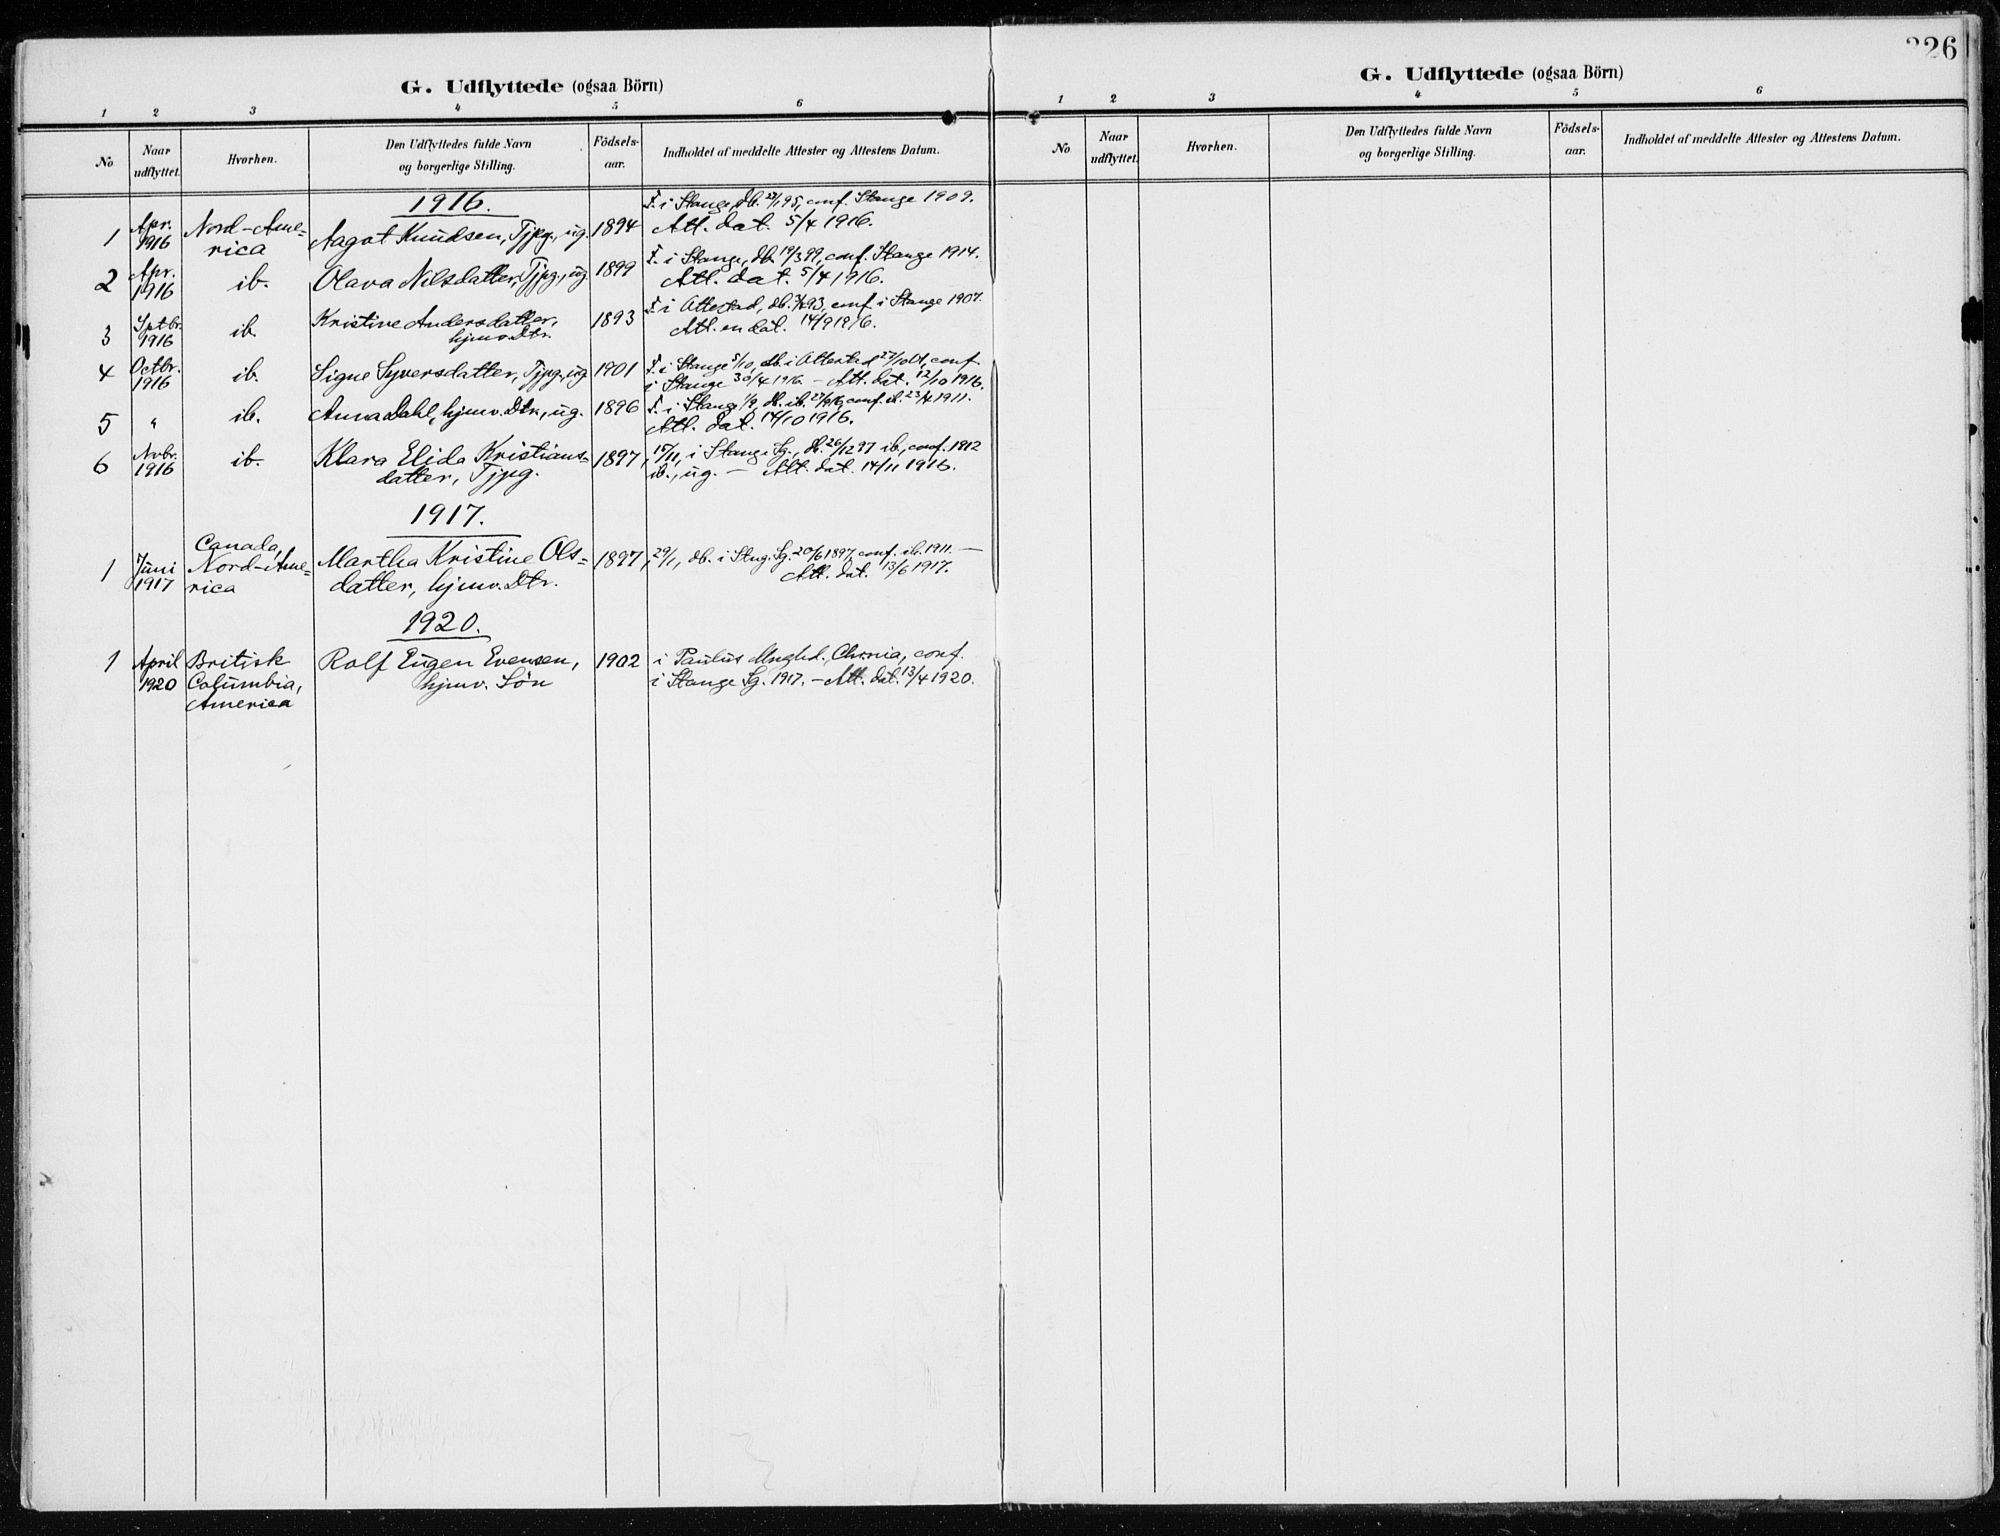 G. Udflyttede (ogsaa Börn)
1 2 3 4 5 6
No
Naar udflyttet.
Hvorhen.
Den Udflyttedes fulde Navn
og borgerlige Stilling.
Födsels-
aar.
Indholdet af meddelte Attester og Attestens Datum.
1916.
1 Apr. 1916 Nord-Ame-
rica
Aagot Knudsen, Tjpg., ug. 1894
F. i Stange, db. 27/1 95, conf. Stange 1909.
Att. dat. 5/4 1916.
2 Apr. 1916 ib. Olava Nilsdatter, Tjpg., ug 1899
F. i Stange, db. 19/3 99, conf. Stange 1914.
Att. dat. 5/4 1916.
3 Sptbr. 1916 ib. Kristine Andersdatter,
hjmv. Dtr. 1893
F. i Ottestad, db. 93, conf. i Stange 1907.
Att. en dat. 14/9 1916.
4 Octbr. 1916 ib. Signe Syversdatter, Tjpg., ug 1901
F. i Stange 5/10, db. i Ottestad conf.
i Stange 30/4 1916. – Att. dat. 12/10 1916.
5 " ib. Anna Dahl, hjmv. Dtr., ug. 1896
F. i Stange db. ib. conf. ib. 23/4 1911.
Att. dat. 14/10 1916.
6 Novbr. 1916 ib. Klara Elida Kristians-
datter, Tjpg. 1897,
15/11, i Stange Sg., db. 26/12 97 ib., conf. 1912
ib., ug. – Att. dat. 14/11 1916.
1917.
1 Juni 1917 Canada,
Nord-Ame-
rica
Martha Kristine Ols-
datter, hjmv. Dtr. 1897,
29/1, db. i Stng. Sg. 20/6 1897, conf. ib. 1911. –
Att. dat. 13/6 1917.
1920.
1 April 1920 Britisk
Columbia,
America
Rolf Eugen Evensen,
hjmv. Sön 1902
i Paulus Mnghd. Chrnia, conf.
i Stange Sg. 1917. – Att. dat. 13/4 1920.
226
G. Udflyttede (ogsaa Börn)
1 2 3 4 5 6
No
Naar
udflyttet.
Hvorhen.
Den Udflyttedes fulde Navn
og borgerlige Stilling.
Födsels-
aar.
Indholdet af meddelte Attester og Attestens Datum.